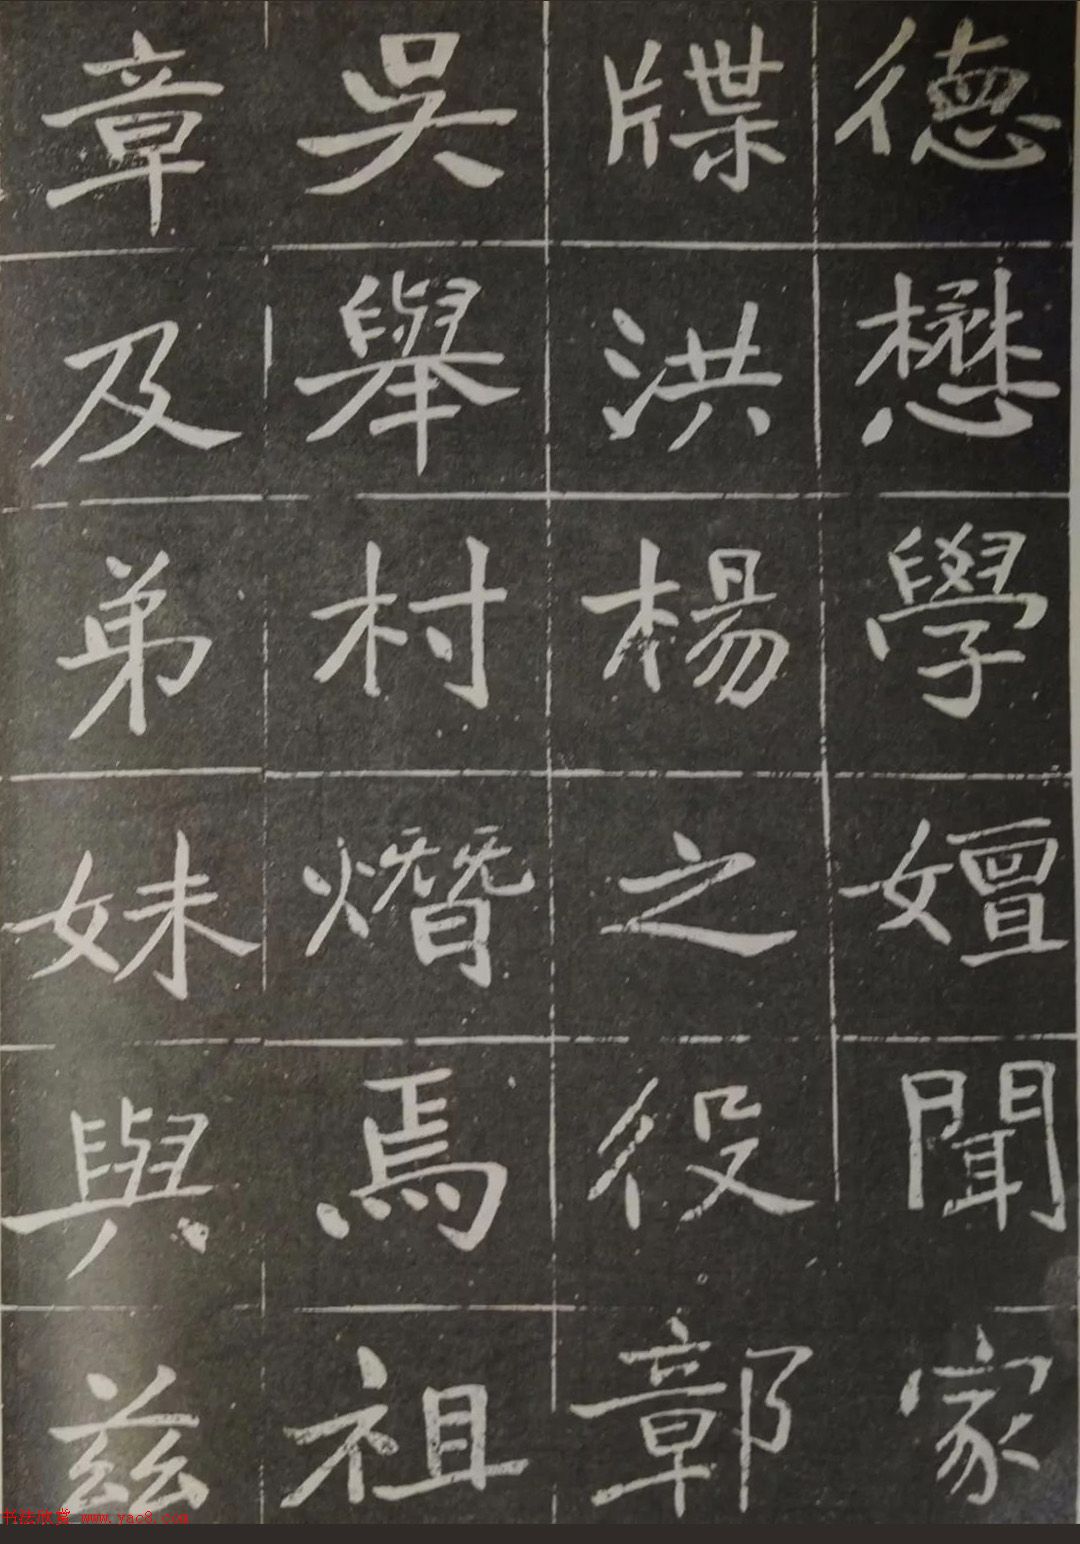 德懋學嬗聞家
牒洪楊之役鄣
吳舉村熸焉祖
章及弟妹與兹
书法欣赏 www.yac8.com